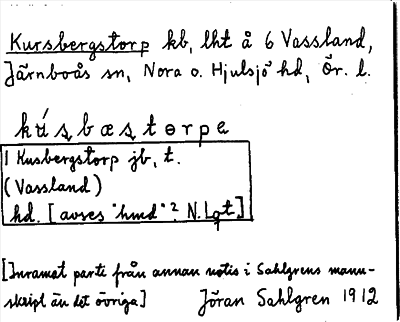 Kursbergstorp kb, lht å 6 Vassland,
Järnboås sn, Nora o. Hjulsjö hd, Ör. l.
kúşbæştorpa
1 Kusbergstorp jb, t.
(Vassland)
hd. [avses "hmd"? N.Lgt]
[Inramat parti från annan notis i Sahlgrens manu-
skript än det övriga] Jöran Sahlgren 1912